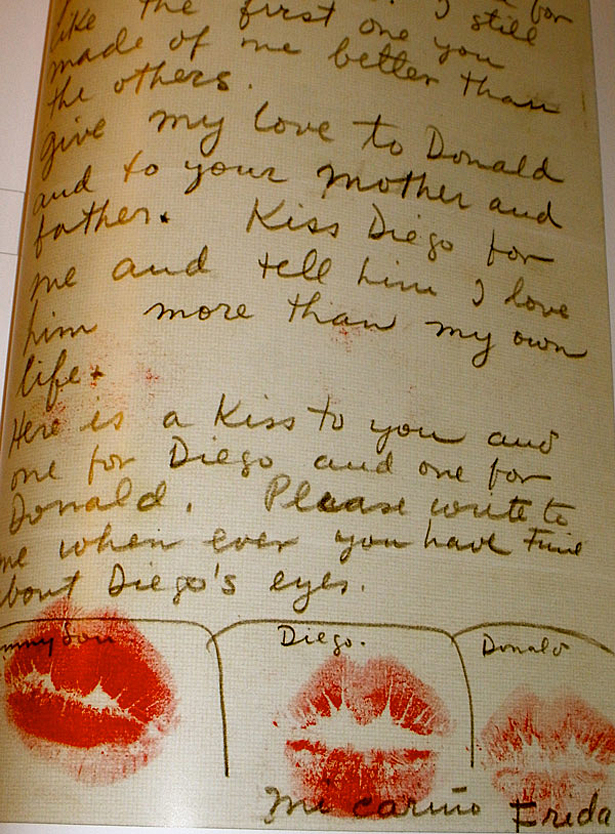 for
like the first one you
I still
made of me better than
the others.
Give my love to Donald
and to your mother and
father. Kiss Diego for
me and tell him I love
him more than my own
life.
Here is a Kiss to you and
one for Diego and one for
Donald. Please write to
me when ever you have time
about Diego's eyes.
Diego. Donald
Mi cariño Frida